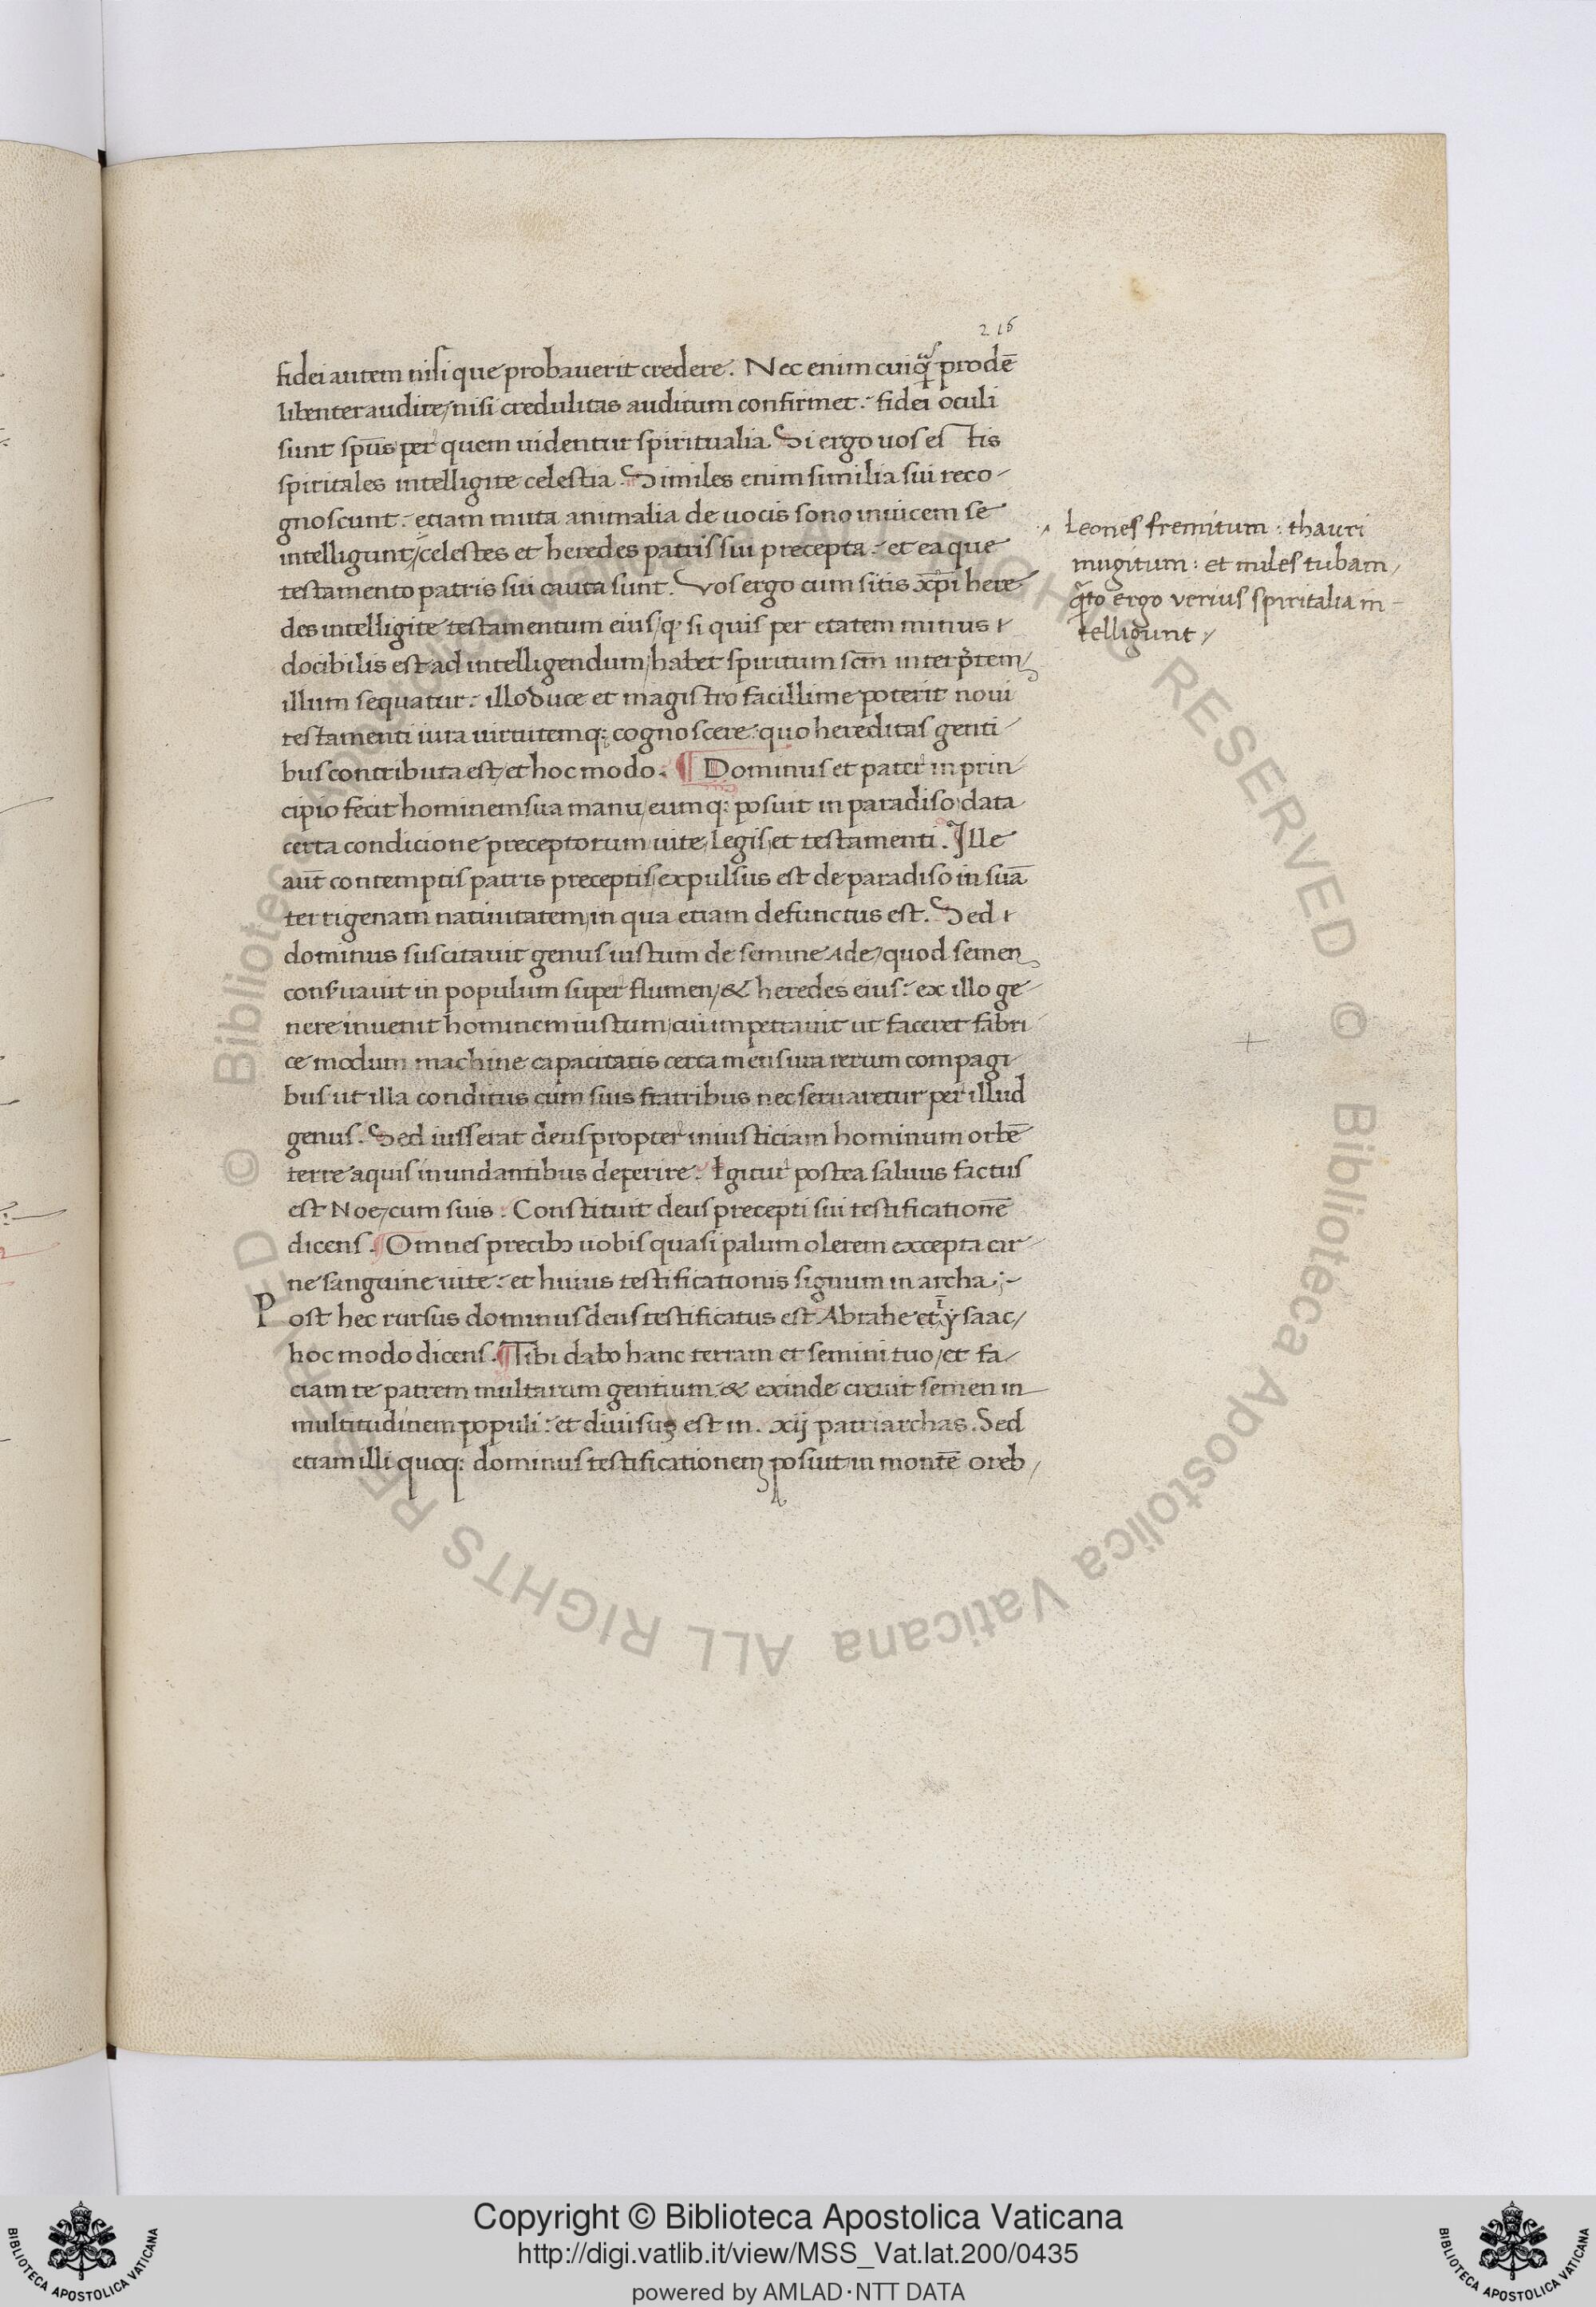 216
fidei autem nisi que probauerit credere. Nec enim cuiq̃ prodē
libenter audire, nisi credulitas auditum confirmet. fidei oculi
sunt sp̄us per quem uidentur spiritualia. Si ergo uos es tis
spiritales intelligite celestia. Similes enim similia sui reco-
gnoscunt. etiam muta animalia de uocis sono inuicem se
intelligunt, celestes et heredes patris sui precepta. et ea que
testamento patris sui cauta sunt. Vos ergo cum sitis xp̄i here-
des intelligite testamentum eius, q si quis per etatem minus
docibilis est ad intelligendum, habet spiritum scm̄ interp̄tem,
illum sequatur. illo duce et magistro facillime poterit noui
testamenti iura uirtutemq; cognoscere. quo hereditas genti-
bus contributa est, et hoc modo. ¶ Dominus et pater in prin-
cipio fecit hominem sua manu, eumq; posuit in paradiso data
certa condicione preceptorum uite, legis, et testamenti. Ille
aut̄ contemptis patris preceptis, expulsus est de paradiso in suā
terrigenam natiuitatem, in qua etiam defunctus est. Sed
dominus suscitauit genus iustum de semine Ade, quod semen
conseruauit in populum super flumen, & heredes eius. ex illo ge-
nere inuenit hominem iustum, cui impetrauit ut faceret fabri-
ce modum machine capacitatis certa mensura rerum compagi-
bus ut illa conditus cum suis fratribus nec seruaretur per illud
genus. Sed iusserat deus propter iniusticiam hominum orbē
terre aquis inundantibus deperire. Igitur postea saluus factus
est Noe, cum suis. Constituit deus precepti sui testificationē
dicens. ¶ Omnes precib; uobis quasi palum olerem excepta car-
ne sanguine uite. et huius testificationis signum in archa ;-
Post hec rursus dominus deus testificatus est Abrahe et ysaac,
hoc modo dicens. ¶ Tibi dabo hanc terram et semini tuo, et fa-
ciam te patrem multarum gentium. & exinde creuit semen in
multitudinem populi. et diuisus est in. xij patriarchas. Sed
etiam illi quoq; dominus testificationem posuit in montē oreb,
Leones fremitum : thauri
mugitum : et miles tubam,
q̃to ergo verius spiritalia in-
telligunt,
© Biblioteca Apostolica Vaticana ALL RIGHTS RESERVED
© Biblioteca Apostolica Vaticana ALL RIGHTS RESERVED
Copyright © Biblioteca Apostolica Vaticana
http://digi.vatlib.it/view/MSS_Vat.lat.200/0435
powered by AMLAD·NTT DATA
BIBLIOTECA APOSTOLICA VATICANA
BIBLIOTECA APOSTOLICA VATICANA